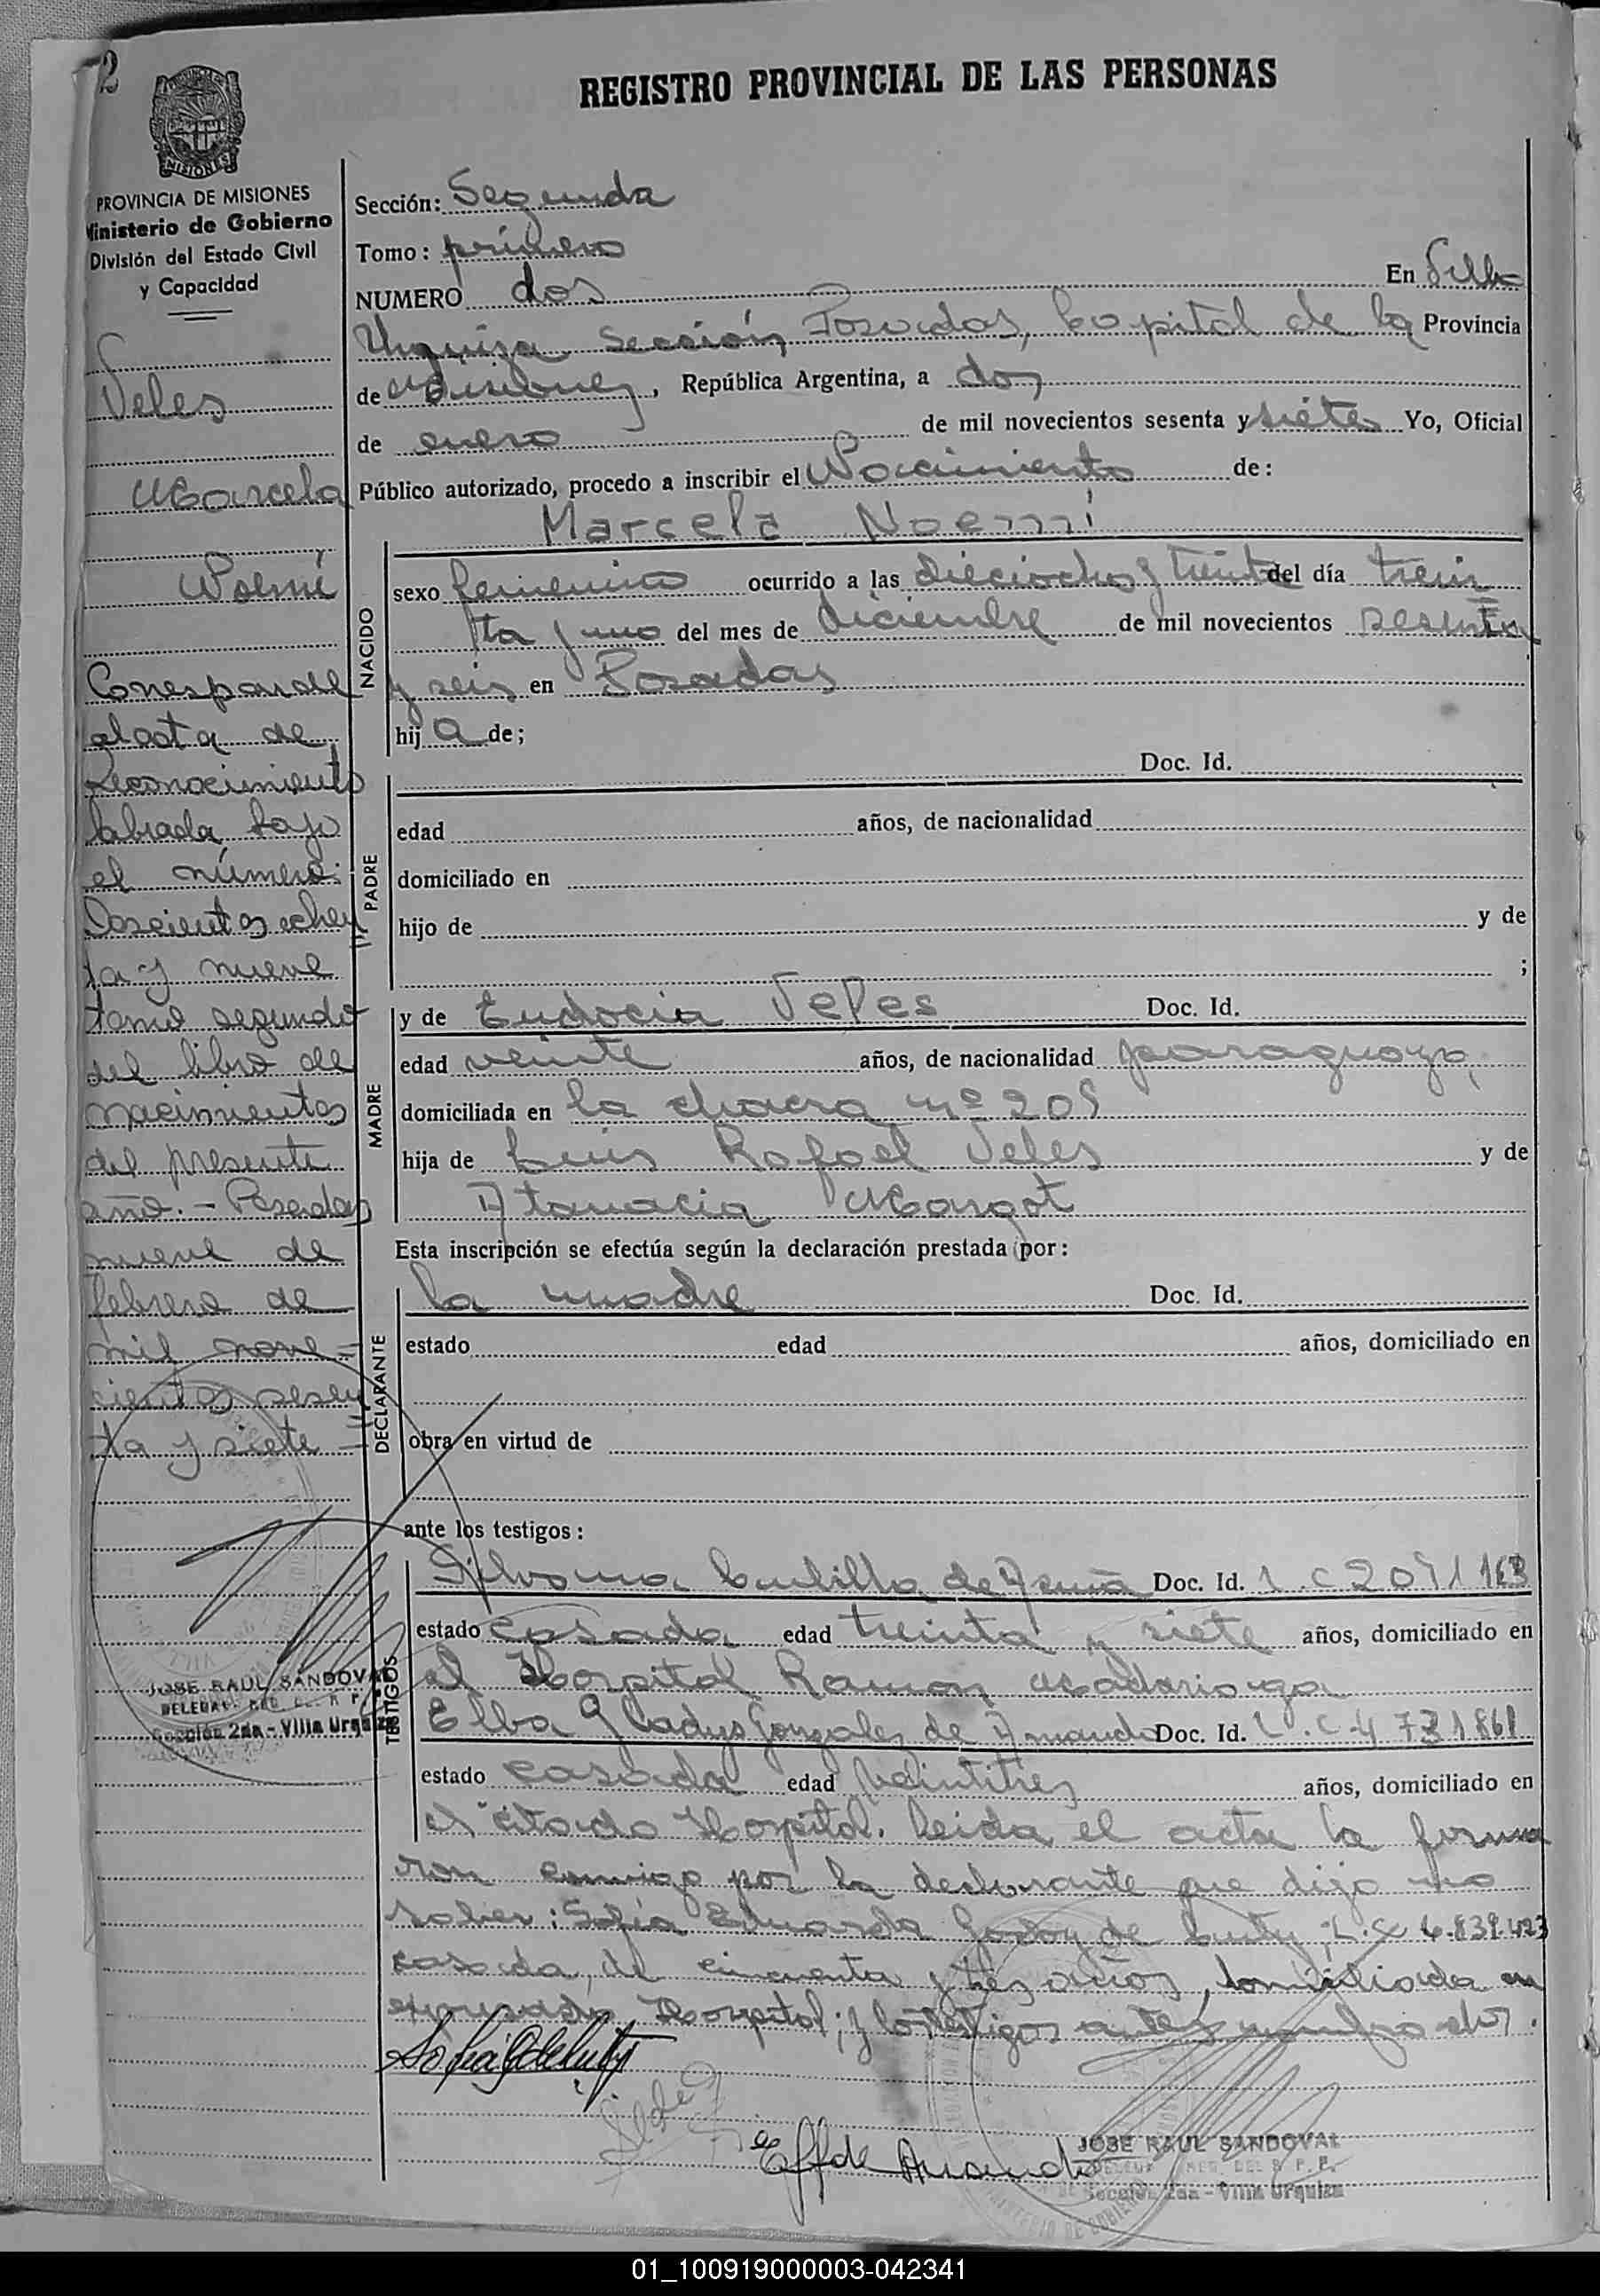 2
REGISTRO PROVINCIAL DE LAS PERSONAS
MISIONES
PROVINCIA DE MISIONES
Ministerio de Gobierno
División del Estado Civil
y Capacidad
Veles
Marcela
Noemí
Corresponde
el acta de
Reconocimiento
labrada bajo
el número:
Doscientos ochen
ta y nueve
tomo segundo
del libro de
nacimientos
del presente
año. - Posadas
nueve de
febrero de
mil nove=
cientos sesen
ta y siete =
JOSE RAUL SANDOVAL
Sección 2da - Villa Urquiza
Sección: Segunda
Tomo: primero
NUMERO dos En Villa
Urquiza sección Posadas, Capital de la Provincia
de Misiones, República Argentina, a dos
de enero de mil novecientos sesenta y siete Yo, Oficial
Público autorizado, procedo a inscribir el Nacimiento de:
Marcela Noemí
NACIDO
sexo femenino ocurrido a las dieciocho y treinta del día trein
ta y uno del mes de diciembre de mil novecientos sesenta
y seis en Posadas
hij a de;
PADRE
Doc. Id.
edad años, de nacionalidad
domiciliado en
hijo de y de
;
MADRE
y de Eudocia Veles Doc. Id.
edad veinte años, de nacionalidad paraguaya,
domiciliada en la chacra nº 205
hija de Luis Rafael Veles y de
Atanacia Margot
Esta inscripción se efectúa según la declaración prestada por:
DECLARANTE
la madre Doc. Id.
estado edad años, domiciliado en
obra en virtud de
ante los testigos:
TESTIGOS
de Doc. Id. L.C 2071163
estado casada edad treinta y siete años, domiciliado en
el Hospital Ramón Madariaga
Elba Gladys Gonzales de Amando Doc. Id. L.C 4731861
estado casada edad veintitres años, domiciliado en
el citado Hospital. Leida el acta la firma
ron conmigo por la declarante que dijo no
saber: Sofía Eduarda Godoy de L.C 4.839.423
casada, de cincuenta y tres años, domiciliada en
expresado Hospital; y los testigos antes nombrados.
E G de Amando
JOSE RAUL SANDOVAL
Sección 2da - Villa Urquiza
01_100919000003-042341